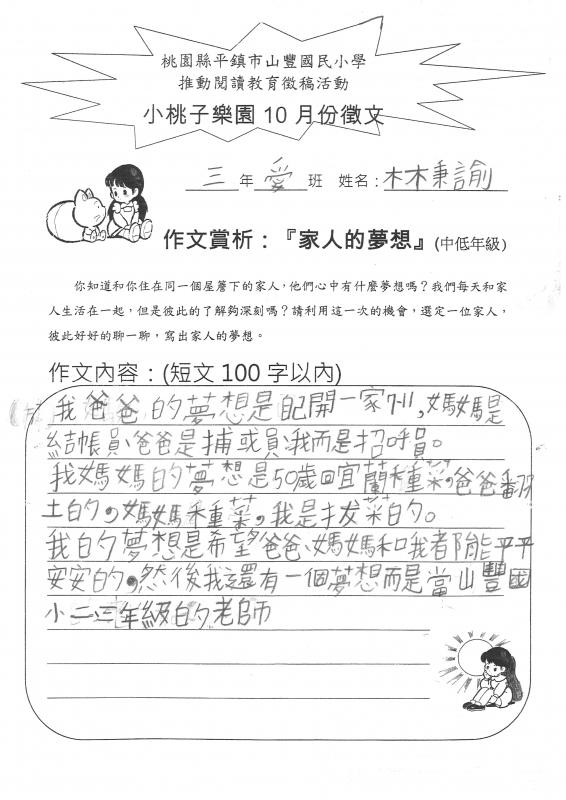 桃園縣平鎮市山豐國民小學
推動閱讀教育徵稿活動
小桃子樂園 10 月份徵文
三年愛班 姓名：林秉諭
作文賞析：『家人的夢想』(中低年級)
你知道和你住在同一個屋簷下的家人，他們心中有什麼夢想嗎？我們每天和家
人生活在一起，但是彼此的了解夠深刻嗎？請利用這一次的機會，選定一位家人，
彼此好好的聊一聊，寫出家人的夢想。
作文內容：(短文 100 字以內)
我爸爸的夢想是配開一家7-11，媽媽是
結帳員、爸爸是捕或員、我而是招呼員。
我媽媽的夢想是50歲回宜蘭種菜，爸爸翻
土的，媽媽種菜，我是拔菜的。
我的夢想是希望爸爸、媽媽和我都能平平
安安的，然後我還有一個夢想而是當山豐國
小二三年級的老師